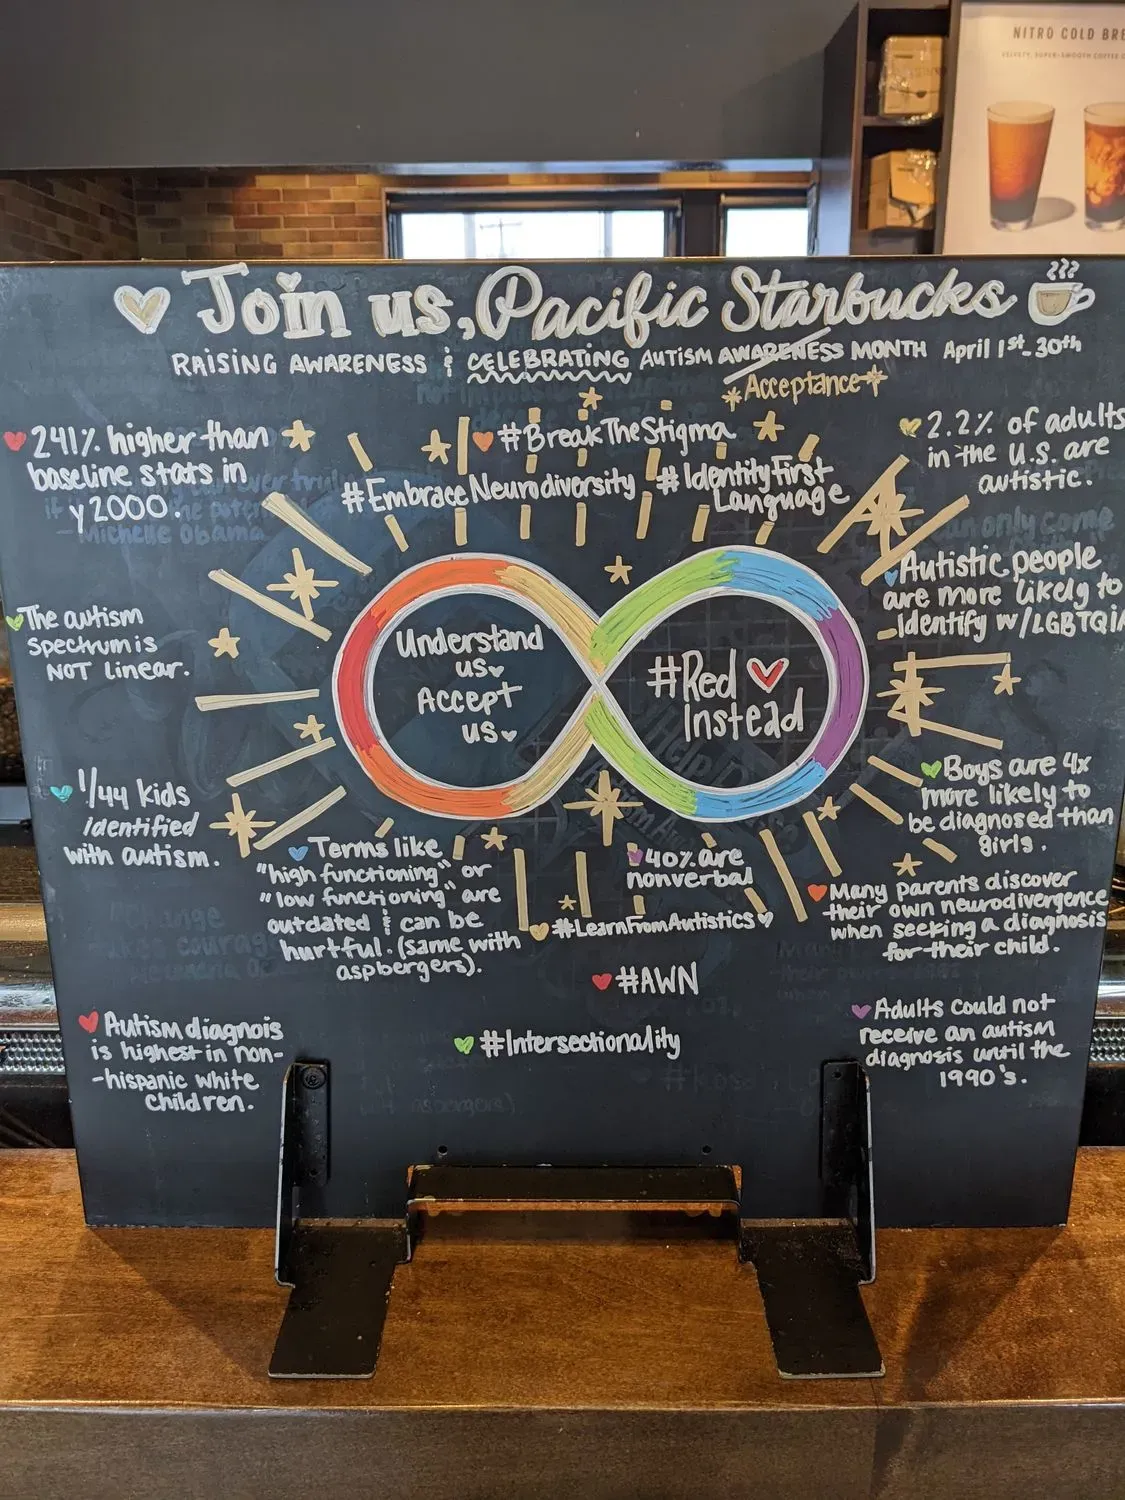 NITRO COLD BRE
VELVETY, SUPER-SMOOTH COFFEE
Join us, Pacific Starbucks
RAISING AWARENESS & CELEBRATING AUTISM AWARENESS MONTH April 1st-30th
Acceptance
241% higher than
baseline stats in
y2000.
#BreakTheStigma
#EmbraceNeurodiversity
#IdentityFirst
Language
2.2% of adults
in the U.S. are
autistic.
Autistic people
are more likely to
Identify w/LGBTQIA
The autism
spectrum is
NOT linear.
Understand
us
Accept
us
#Red
Instead
1/44 kids
identified
with autism.
Boys are 4x
more likely to
be diagnosed than
girls.
Terms like
"high functioning" or
"low functioning" are
outdated & can be
hurtful. (same with
aspbergers).
40% are
nonverbal
#LearnFromAutistics
Many parents discover
their own neurodivergence
when seeking a diagnosis
for their child.
#AWN
#Intersectionality
Autism diagnois
is highest in non-
-hispanic white
children.
Adults could not
receive an autism
diagnosis until the
1990's.
- Michelle Obama